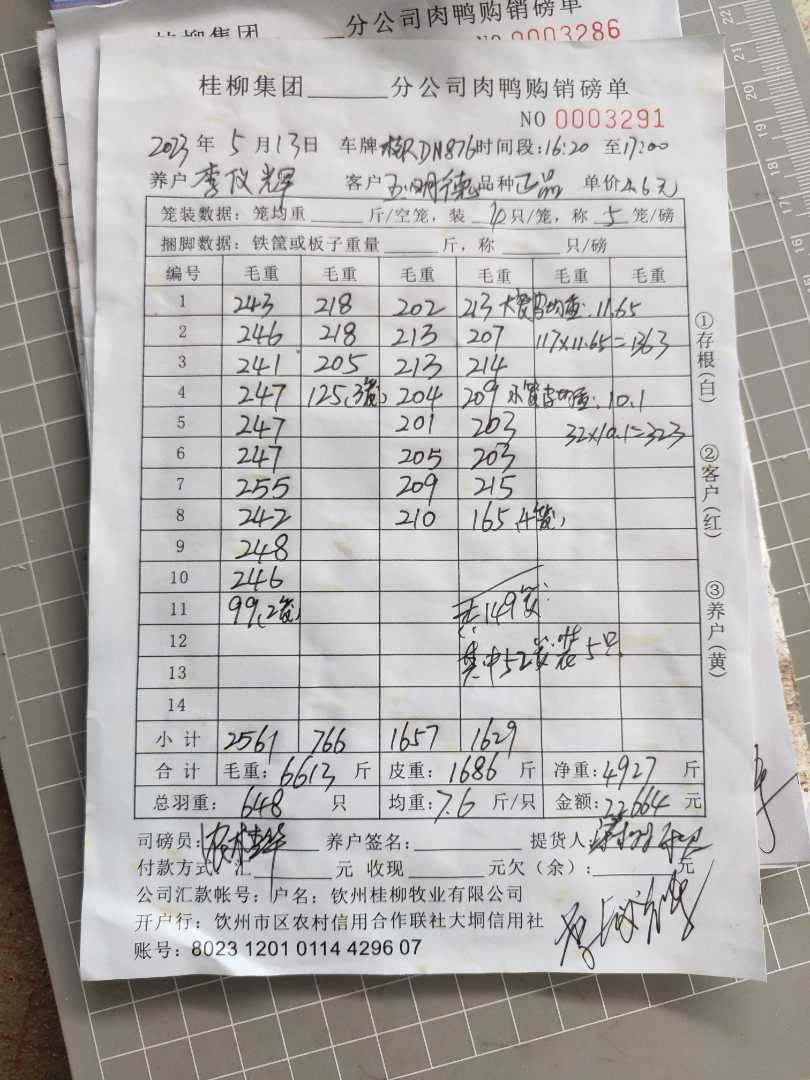 分公司肉鸭购销磅单
桂柳集团
NO 0003286
桂柳集团______分公司肉鸭购销磅单
NO 0003291
2023 年 5 月 13 日 车牌 桂RDN876 时间段: 16:20 至 17:00
养户 李仪辉 客户 玉明德 品种 正品 单价 4.6元
笼装数据: 笼均重______斤/空笼, 装 4 只/笼, 称 5 笼/磅
捆脚数据: 铁筐或板子重量______斤, 称______只/磅
编号 毛重 毛重 毛重 毛重 毛重 毛重
1 243 218 202 213 大笼均重: 11.65
2 246 218 213 207 117×11.65=1363
3 241 205 213 214
4 247 125(3笼) 204 209 均重: 10.1
5 247 201 203 32×10.1=323
6 247 205 203
7 255 209 215
8 242 210 165(4笼)
9 248
10 246
11 99(2笼) 共149笼
12
13 其中52笼装5只
14
小计 2561 766 1657 1629
合计 毛重: 6613 斤 皮重: 1686 斤 净重: 4927 斤
总羽重: 648 只 均重: 7.6 斤/只 金额: 22664 元
司磅员: 养户签名:______ 提货人:
付款方式: 汇______元 收现______元欠(余):______元
公司汇款帐号: 户名: 钦州桂柳牧业有限公司
开户行: 钦州市区农村信用合作联社大垌信用社
账号: 8023 1201 0114 4296 07
①存根(白)
②客户(红)
③养户(黄)
22
21
20
19
18
17
16